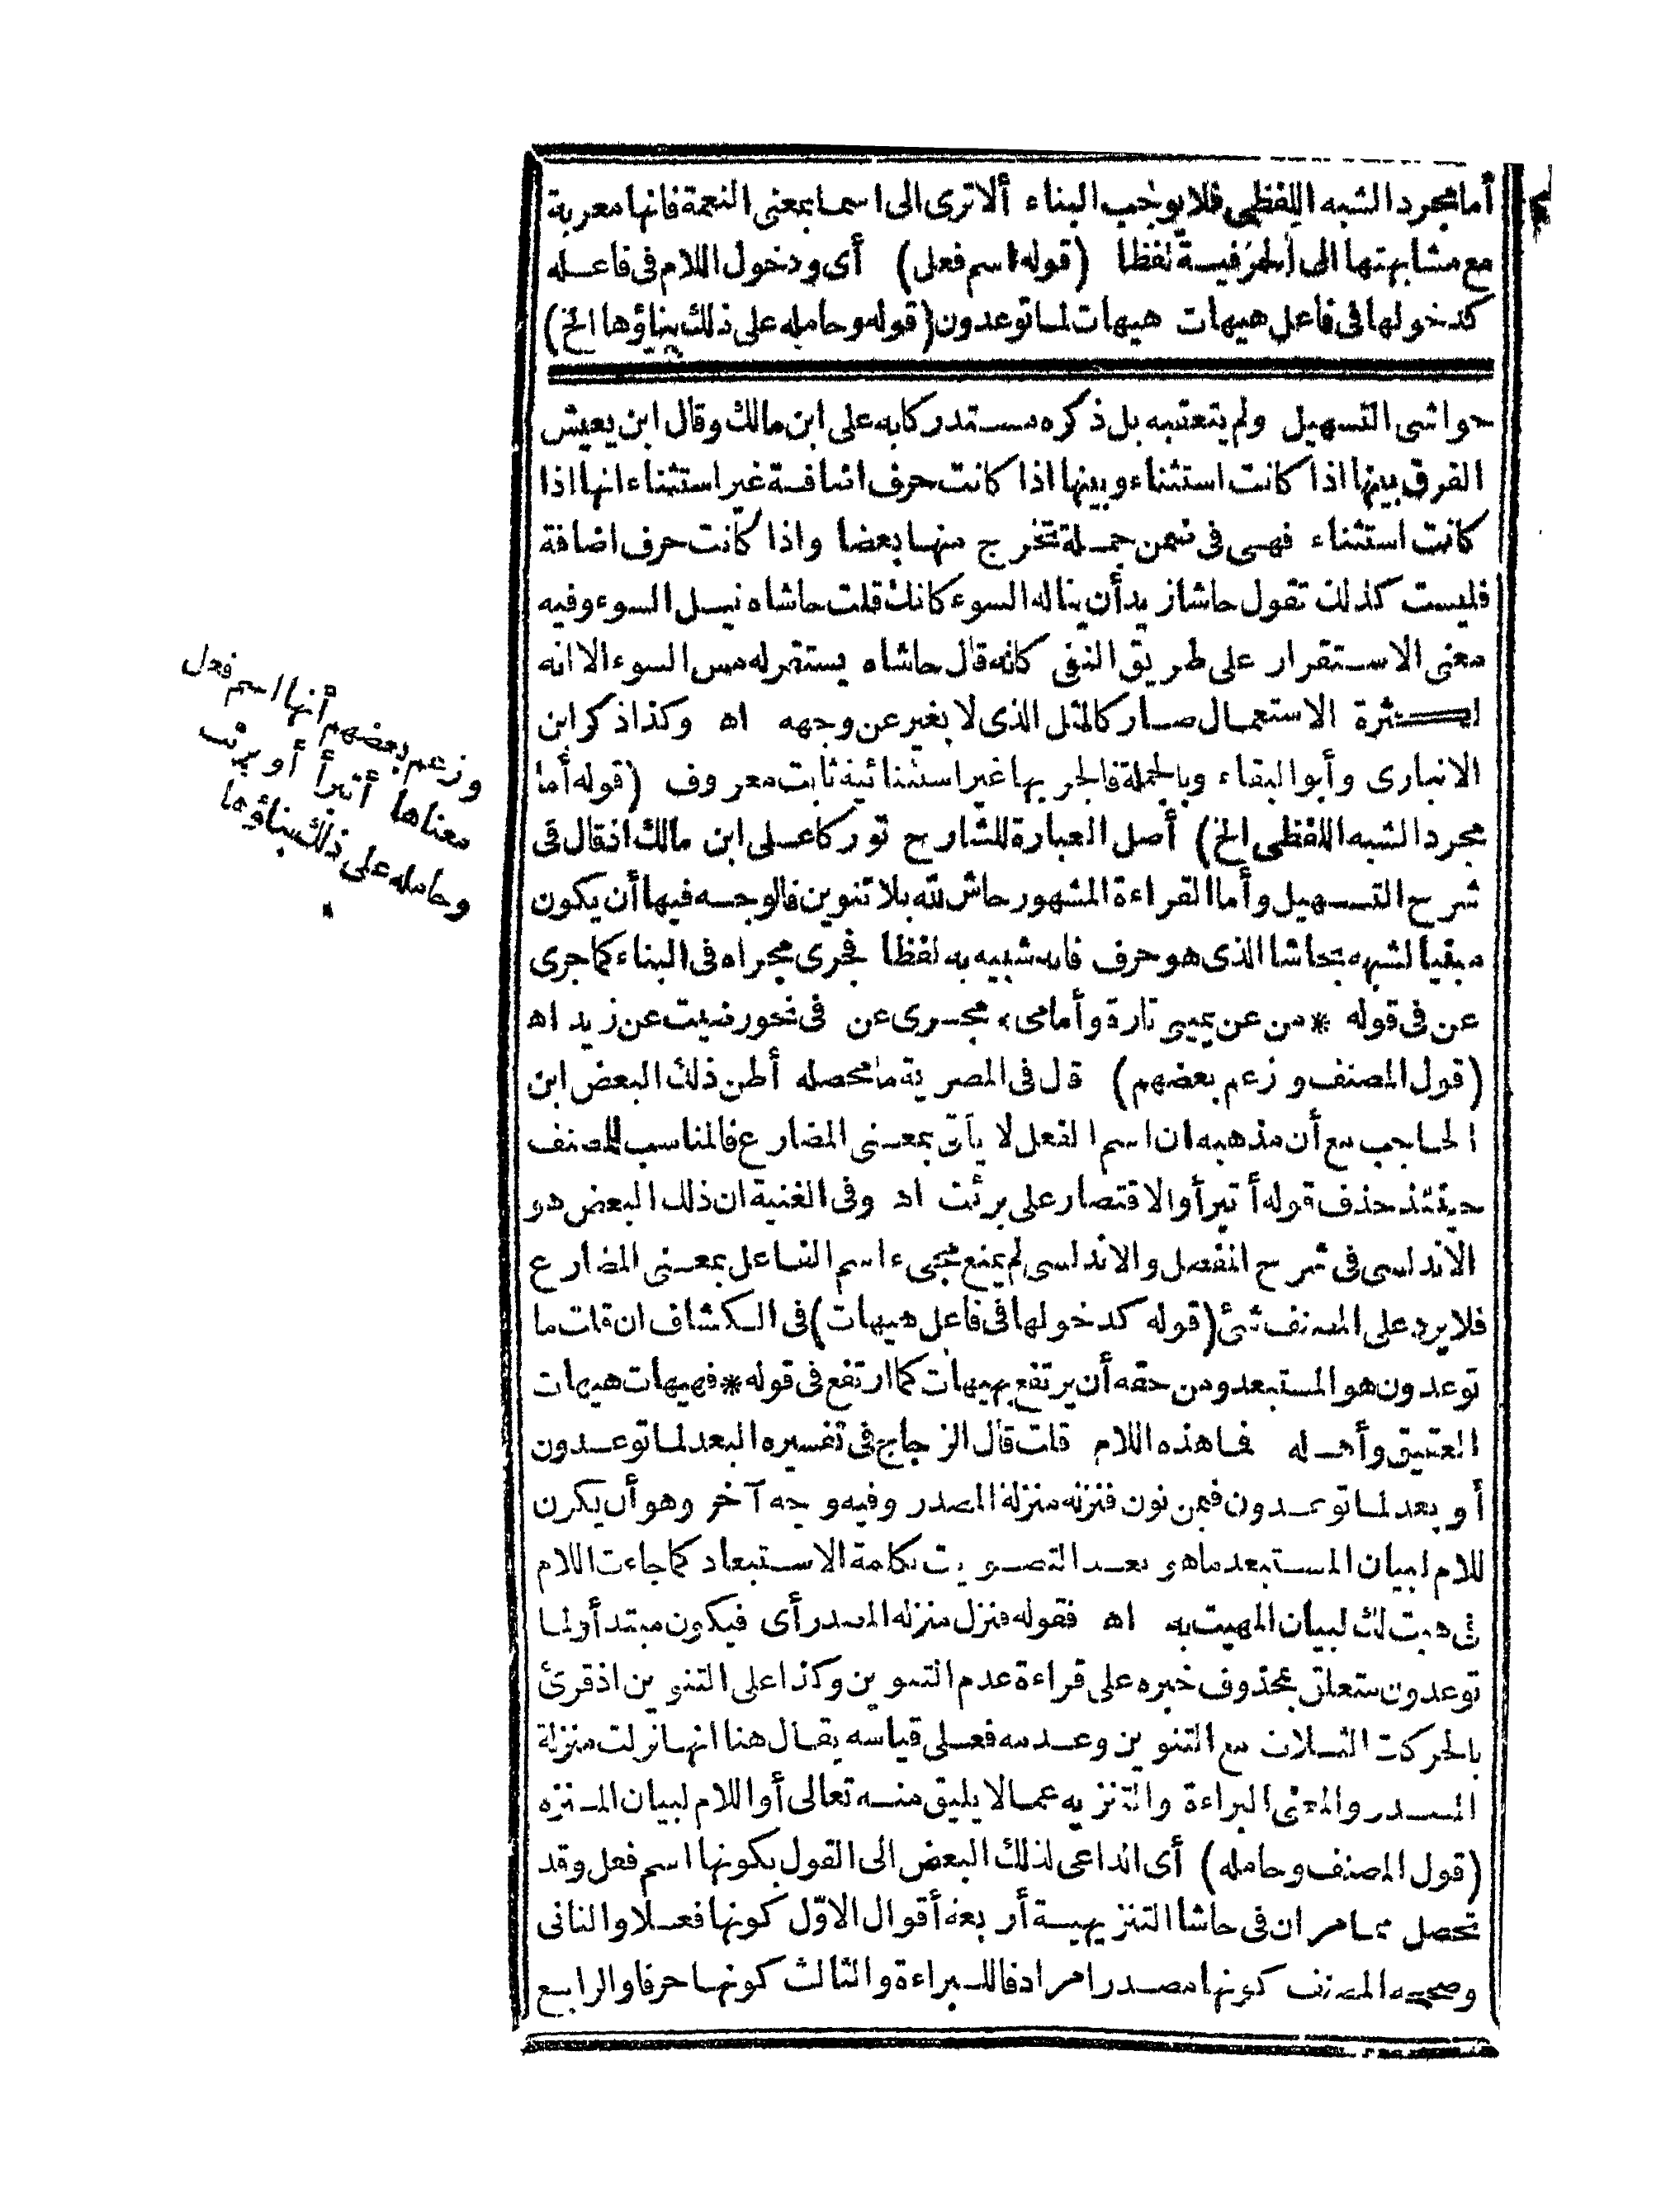 أما مجرد الشبه اللفظي فلا يوجب البناء ألا ترى الى اسما بمعنى النعمة فانها معربة
مع مشابهتها الى الحرفية لفظا (قوله اسم فعل) أى ودخول اللام فى فاعله
كدخولها فى فاعل هيهات هيهات لما توعدون (قوله وحامله على ذلك بناؤها الخ)
حواشى التسهيل ولم يتعقبه بل ذكره مستدركا به على ابن مالك وقال ابن يعيش
الفرق بينها اذا كانت استثناء وبينها اذا كانت حرف اضافة غير استثناء انها اذا
كانت استثناء فهى فى ضمن جملة تخرج منها بعضا واذا كانت حرف اضافة
فليست كذلك تقول حاشا زيد أن يناله السوء كانك قلت حاشاه نيل السوء وفيه
معنى الاستقرار على طريق النفى كانه قال حاشاه يستقر له مس السوء الا انه
لكثرة الاستعمال صار كالمثل الذى لا يغير عن وجهه اه وكذا ذكر ابن
الانبارى وأبو البقاء وبالجملة فالجر بها غير استثنائية ثابت معروف (قوله أما
مجرد الشبه اللفظى الخ) أصل العبارة للشارح توركا على ابن مالك اذ قال فى
شرح التسهيل وأما القراءة المشهور حاش لله بلا تنوين فالوجه فيها أن يكون
مبنيا لشبهه بحاشا الذى هو حرف فانه شبيه به لفظا فجرى مجراه فى البناء كما جرى
عن فى قوله * من عن يمينى تارة وأمامى * مجرى عن فى نحو رضيت عن زيد اه
(قول المصنف وزعم بعضهم) قال فى المصرية ما محصله أظن ذلك البعض ابن
الحاجب مع أن مذهبه ان اسم الفعل لا يأتى بمعنى المضارع فالمناسب للمصنف
حينئذ حذف قوله أتبرأ والاقتصار على برئت اه وفى الغنية ان ذلك البعض هو
الاندلسى فى شرح المفصل والاندلسى لم يمنع مجىء اسم الفاعل بمعنى المضارع
فلا يرد على المصنف شئ (قوله كدخولها فى فاعل هيهات) فى الكشاف ان قلت ما
توعدون هو المستبعد ومن حقه أن يرتفع بهيهات كما ارتفع فى قوله * فهيهات هيهات
العقيق وأهله فما هذه اللام قلت قال الزجاج فى تفسيره البعد لما توعدون
أو بعد لما توعدون فيمن نون فنزله منزلة المصدر وفيه وجه آخر وهو أن يكون
للام لبيان المستبعد ما هو بعد التصويت بكلمة الاستبعاد كما جاءت اللام
فى هيت لك لبيان المهيت به اه فقوله فنزل منزله المصدر أى فيكون مبتدأ ولما
توعدون متعلق بمحذوف خبره على قراءة عدم التنوين وكذا على التنوين اذ قرئ
بالحركات الثلاث مع التنوين وعدمه فعلى قياسه يقال هنا انها نزلت منزلة
المصدر والمعنى البراءة والتنزيه عما لا يليق منه تعالى أو اللام لبيان المنزه
(قول المصنف وحامله) أى الداعى لذلك البعض الى القول بكونها اسم فعل وقد
تحصل مما مر ان فى حاشا التنزيهية أربعة أقوال الاوّل كونها فعلا والثانى
وصححه المصنف كونها مصدرا مرادفا للبراءة والثالث كونها حرفا والرابع
وزعم بعضهم أنها اسم فعل
معناها أتبرأ أو برئت
وحامله على ذلك بناؤها